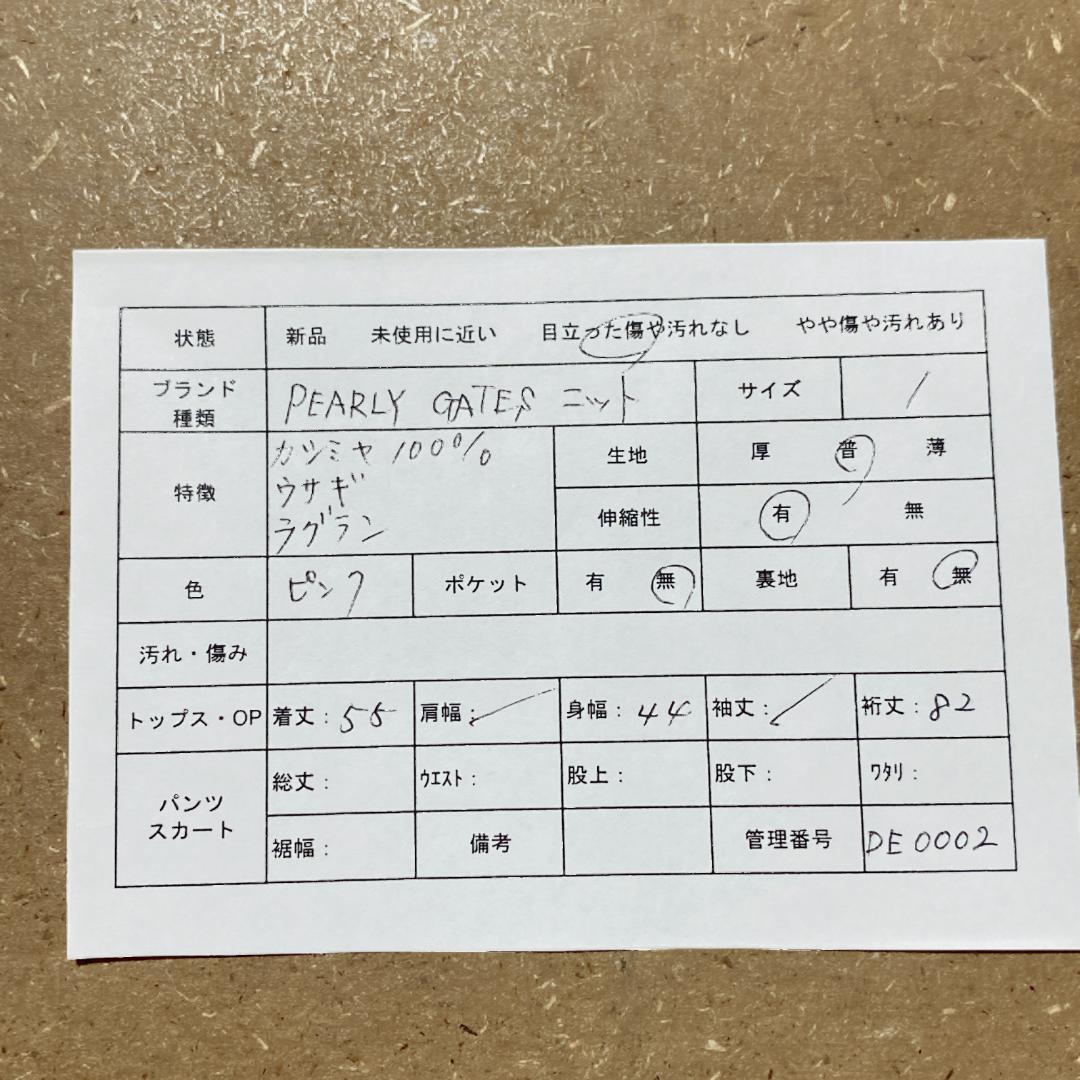 状態 新品 未使用に近い 目立った傷や汚れなし やや傷や汚れあり
ブランド 種類 PEARLY GATES ニット サイズ 1
特徴 カシミヤ 100%
ウサギ
ラグラン
生地 厚 普 薄
伸縮性 有 無
色 ピンク ポケット 有 無 裏地 有 無
汚れ・傷み
トップス・OP 着丈: 55 肩幅: 身幅: 44 袖丈: 裄丈: 82
パンツ スカート 総丈: ウエスト: 股上: 股下: ワタリ:
裾幅: 備考 管理番号 DE0002